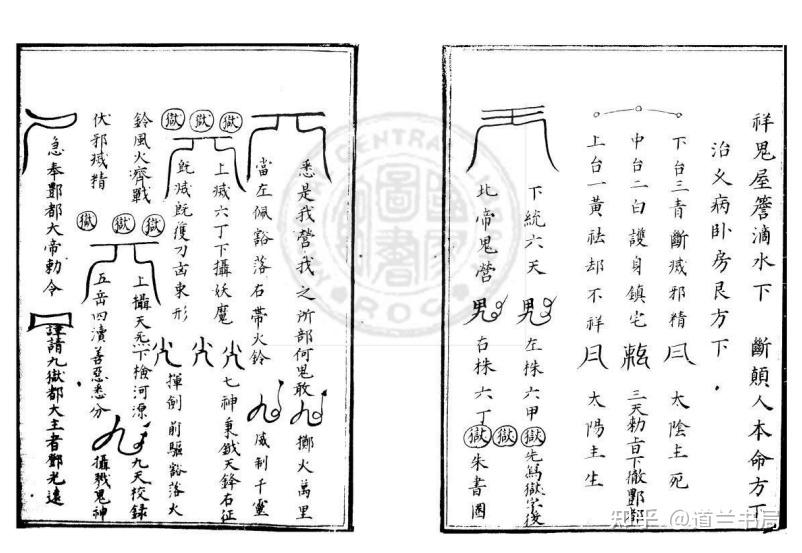 祥鬼屋簷滴水下　斷顛人本命方下
治父病卧房艮方下
下台三青斷滅邪精　太陰主死
中台二白護身鎮宅　三天勅旨下徹酆都
上台一黃祛却不祥　太陽主生
下統六天　左株六甲獄先為獄字後
北帝鬼營　右株六丁獄獄朱書圈
悉是我營我之所部何鬼敢　擲火萬里
當左佩豁落右帶火鈴　威制千靈
獄獄獄
上滅六丁下攝妖魔　七神秉鉞天鋒右征
既滅既獲刀古東形　揮劍前驅豁落火
鈴風火濟戰　上攝天炁下檢河源　九天校録
伏邪滅精　五岳四瀆善惡悉分　攝戮鬼神
獄獄獄
急奉酆都大帝勅令　謹請九獄都大主者鄧光遠
CENTRAL
ROC
知乎 @道兰书局